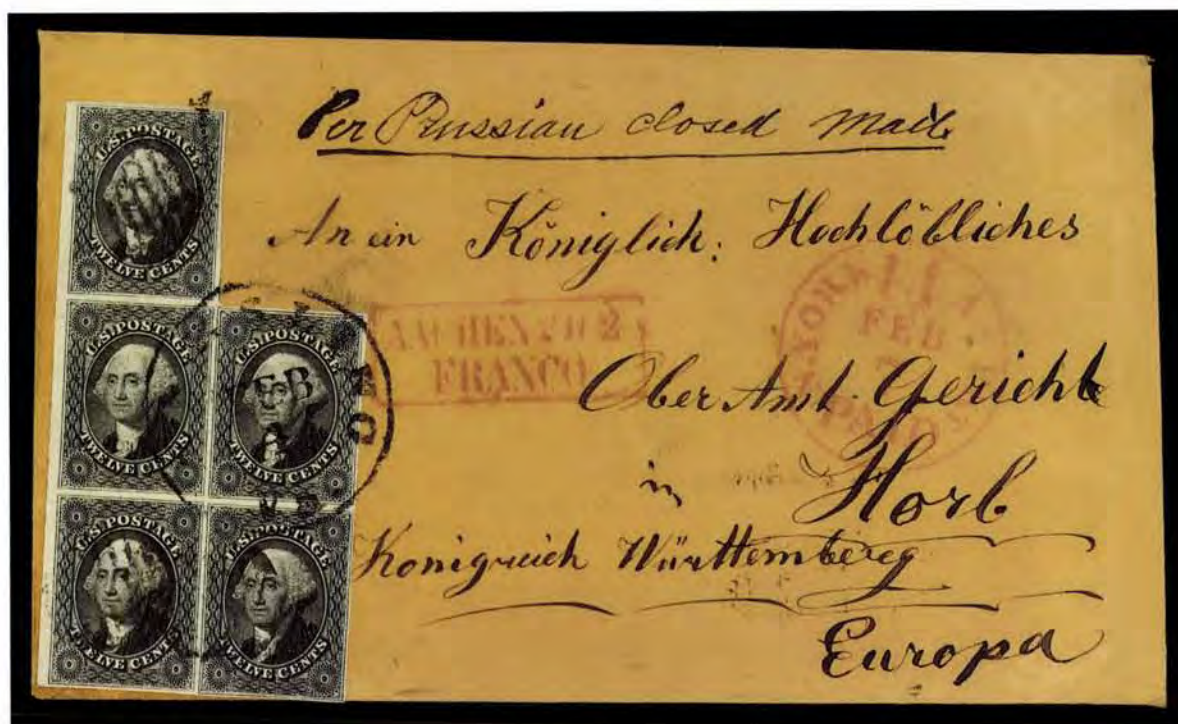 Per Prussian closed mail
An ein Königlich: Hochlöbliches
Ober Amt. Gericht
in Horb
Königreich Württembereg
Europa
U.S. POSTAGE
TWELVE CENTS
U.S. POSTAGE
TWELVE CENTS
U.S. POSTAGE
TWELVE CENTS
U.S. POSTAGE
TWELVE CENTS
U.S. POSTAGE
TWELVE CENTS
FEB
AACHEN
FRANCO
N. YORK
FEB
PAID